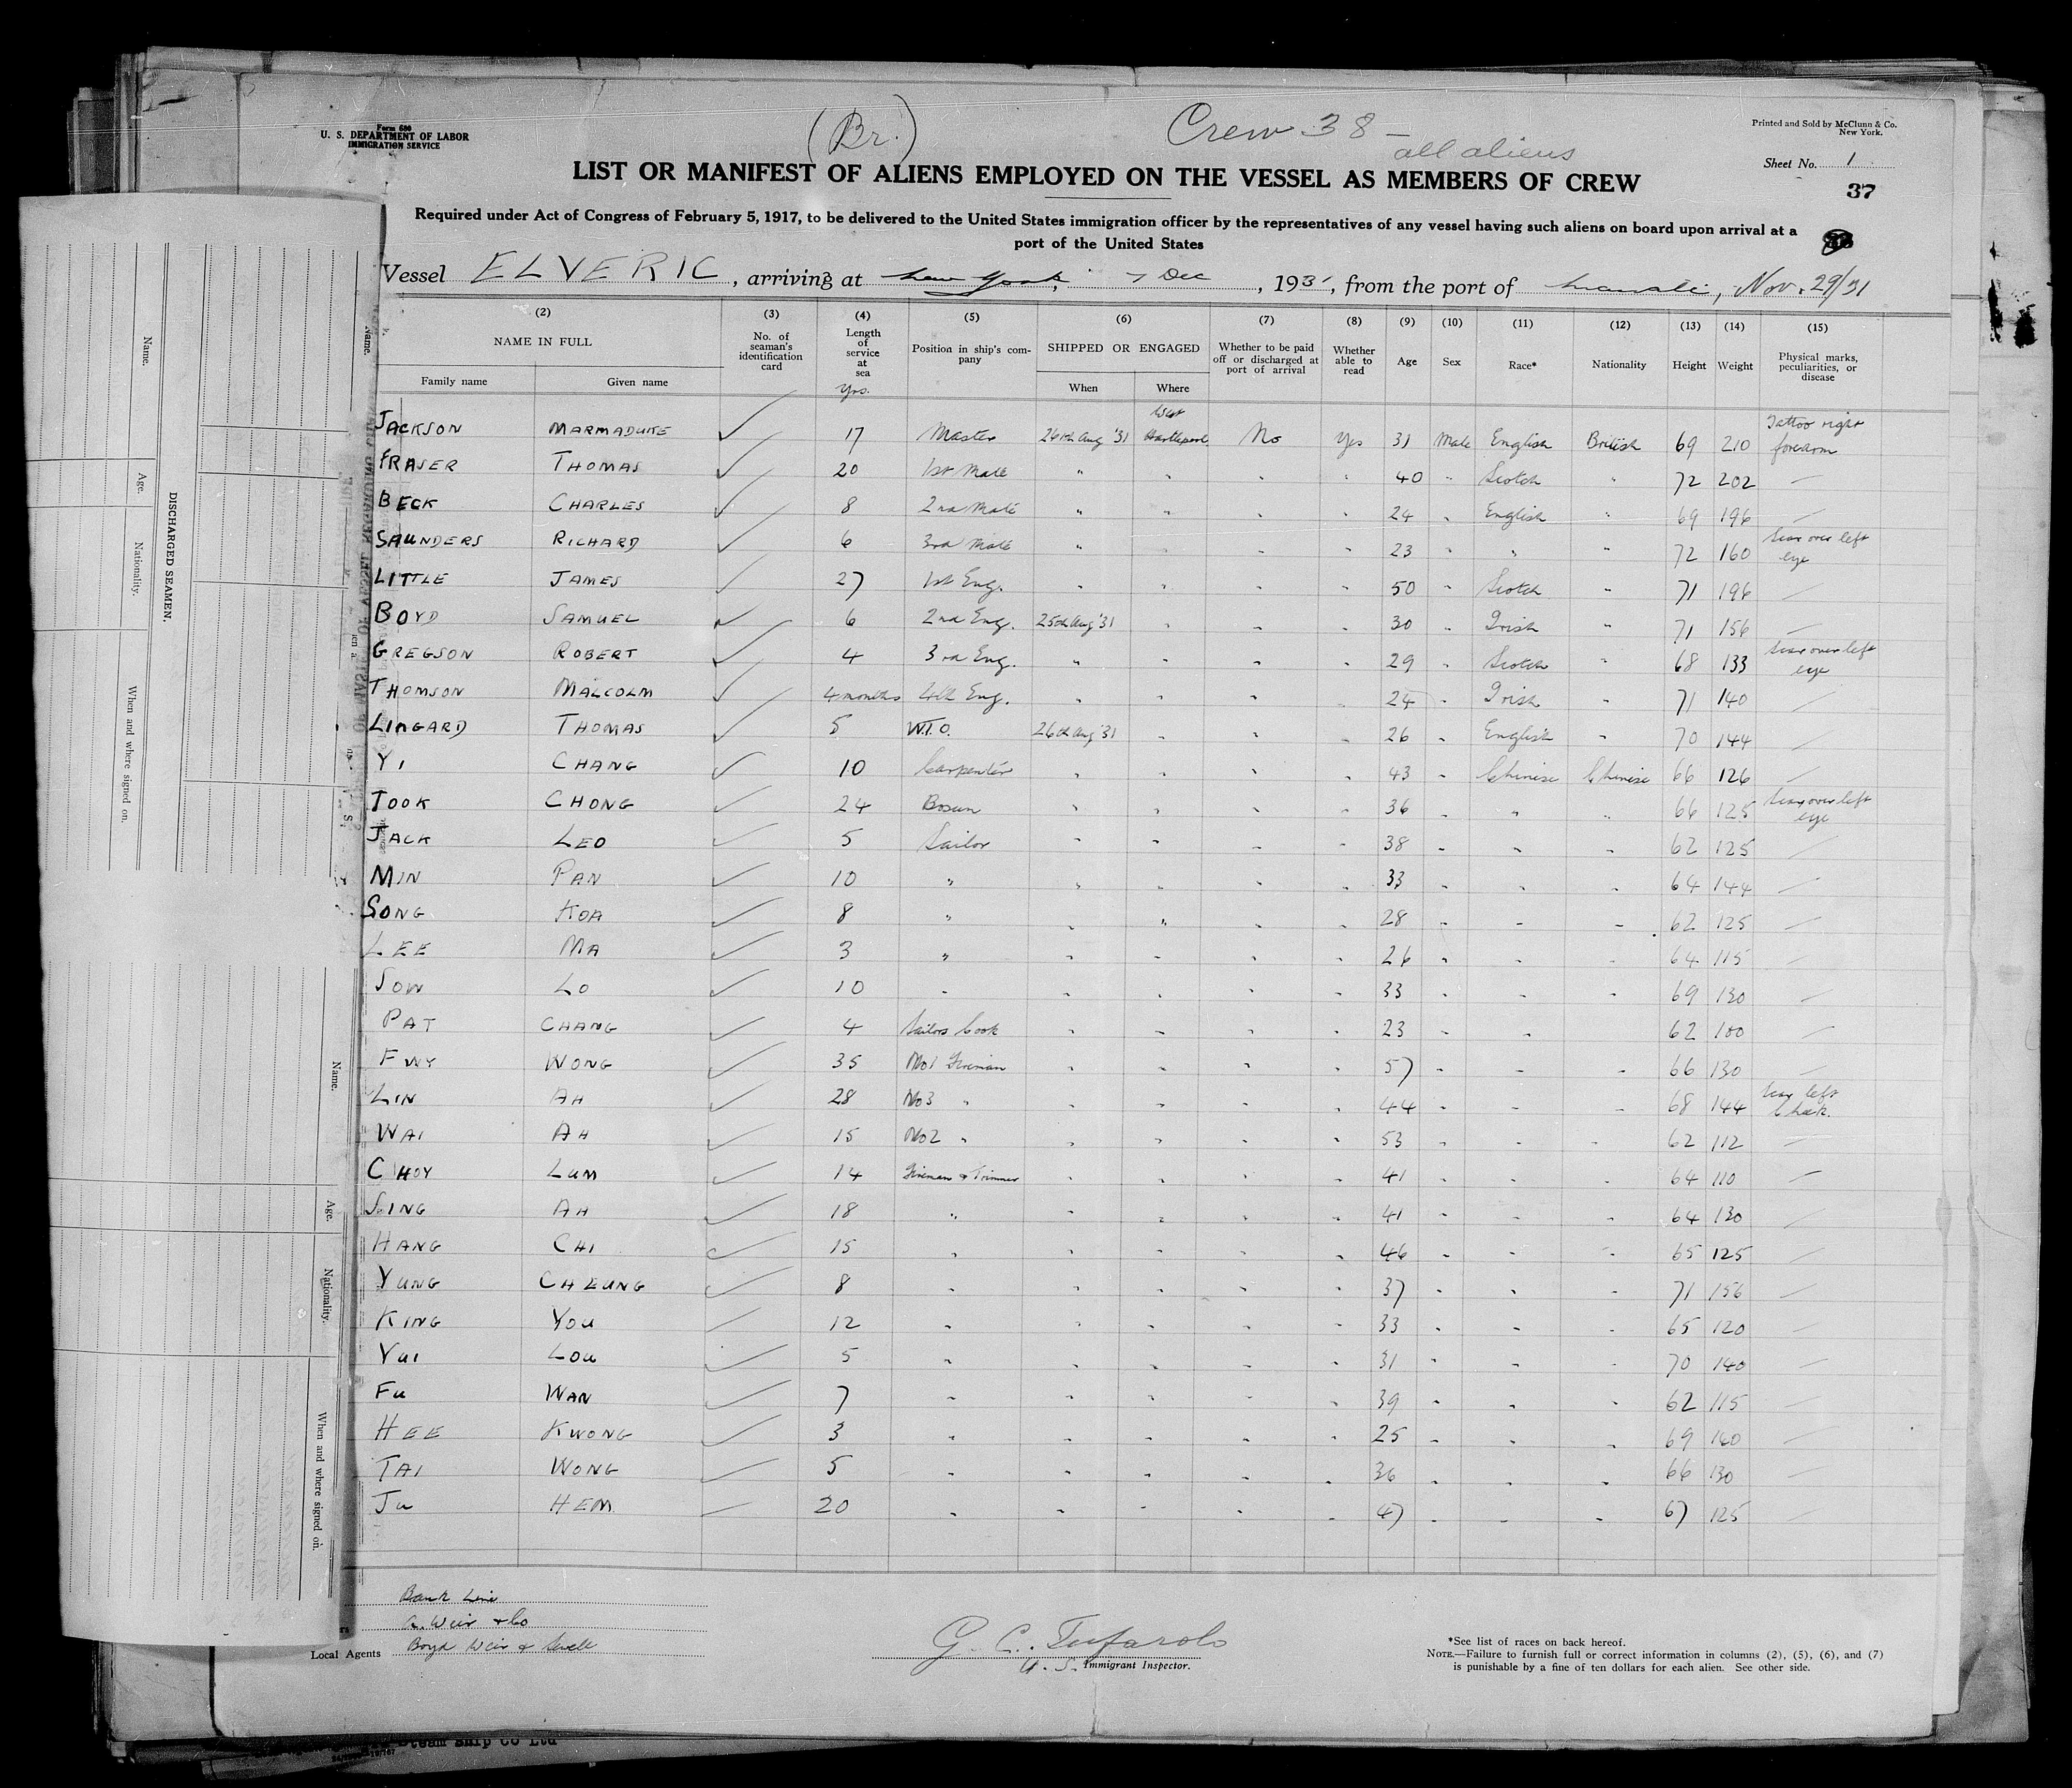 (Br.)
Crew 38 —
all aliens
Form 680
U. S. DEPARTMENT OF LABOR
IMMIGRATION SERVICE
Printed and Sold by McClunn & Co.
New York.
Sheet No. 1
37
LIST OR MANIFEST OF ALIENS EMPLOYED ON THE VESSEL AS MEMBERS OF CREW
Required under Act of Congress of February 5, 1917, to be delivered to the United States immigration officer by the representatives of any vessel having such aliens on board upon arrival at a
port of the United States
Vessel ELVERIC, arriving at New York, 7 Dec, 1931, from the port of Nov. 29/31
(2) (3) (4) (5) (6) (7) (8) (9) (10) (11) (12) (13) (14) (15)
NAME IN FULL
Family name Given name
No. of seaman's identification card
Length of service at sea
Yrs.
Position in ship's company
SHIPPED OR ENGAGED
When Where
Whether to be paid off or discharged at port of arrival
Whether able to read
Age Sex Race* Nationality Height Weight
Physical marks, peculiarities, or disease
JACKSON MARMADUKE 17 Master 26th Aug '31 West Hartlepool No Yes 31 Male English British 69 210 Tattoo right forearm
FRASER THOMAS 20 1st Mate " " " " 40 " Scotch " 72 202 —
BECK CHARLES 8 2nd Mate " " " " 24 " English " 69 196 —
SAUNDERS RICHARD 6 3rd Mate " " " " 23 " " " 72 160 Scar over left eye
LITTLE JAMES 27 1st Eng. " " " " 50 " Scotch " 71 196 —
BOYD SAMUEL 6 2nd Eng. 25th Aug '31 " " " 30 " Irish " 71 156 —
GREGSON ROBERT 4 3rd Eng. " " " " 29 " Scotch " 68 133 Scar over left eye
THOMSON MALCOLM 4 months 4th Eng. " " " " 24 " Irish " 71 140 —
LINGARD THOMAS 5 W.T.O. 26th Aug '31 " " " 26 " English " 70 144 —
YI CHANG 10 Carpenter " " " " 43 " Chinese Chinese 66 126 —
TOOK CHONG 24 Bosun " " " " 36 " " " 66 125 Scar over left eye
JACK LEO 5 Sailor " " " " 38 " " " 62 125 —
MIN PAN 10 " " " " " 33 " " " 64 144 —
SONG KOA 8 " " " " " 28 " " " 62 125 —
LEE MA 3 " " " " " 26 " " " 64 115 —
SOW LO 10 " " " " " 33 " " " 69 130 —
PAT CHANG 4 Sailors Cook " " " " 23 " " " 62 100 —
FWY WONG 35 No1 Fireman " " " " 57 " " " 66 130 —
LIN AH 28 No3 " " " " " 44 " " " 68 144 Scar left Cheek.
WAI AH 15 No2 " " " " " 53 " " " 62 112 —
CHOY LUM 14 Fireman & Trimmer " " " " 41 " " " 64 110 —
SING AH 18 " " " " " 41 " " " 64 130 —
HANG CHI 15 " " " " " 46 " " " 65 125 —
YUNG CHEUNG 8 " " " " " 37 " " " 71 156 —
KING YOU 12 " " " " " 33 " " " 65 120 —
YUI LOU 5 " " " " " 31 " " " 70 140 —
FU WAN 7 " " " " " 39 " " " 62 115 —
HEE KWONG 3 " " " " " 25 " " " 69 140 —
TAI WONG 5 " " " " " 36 " " " 66 130 —
JU HEM 20 " " " " " 47 " " " 67 125 —
Bank Line
A. Weir & Co
Local Agents Boyd Weir & Sewell
G. C. Tufarolo
U. S. Immigrant Inspector.
*See list of races on back hereof.
NOTE.—Failure to furnish full or correct information in columns (2), (5), (6), and (7)
is punishable by a fine of ten dollars for each alien. See other side.
DISCHARGED SEAMEN.
Name.
Age.
Nationality.
When and where signed on.
Name.
Age.
Nationality.
When and where signed on.
Steam Ship Co Ltd